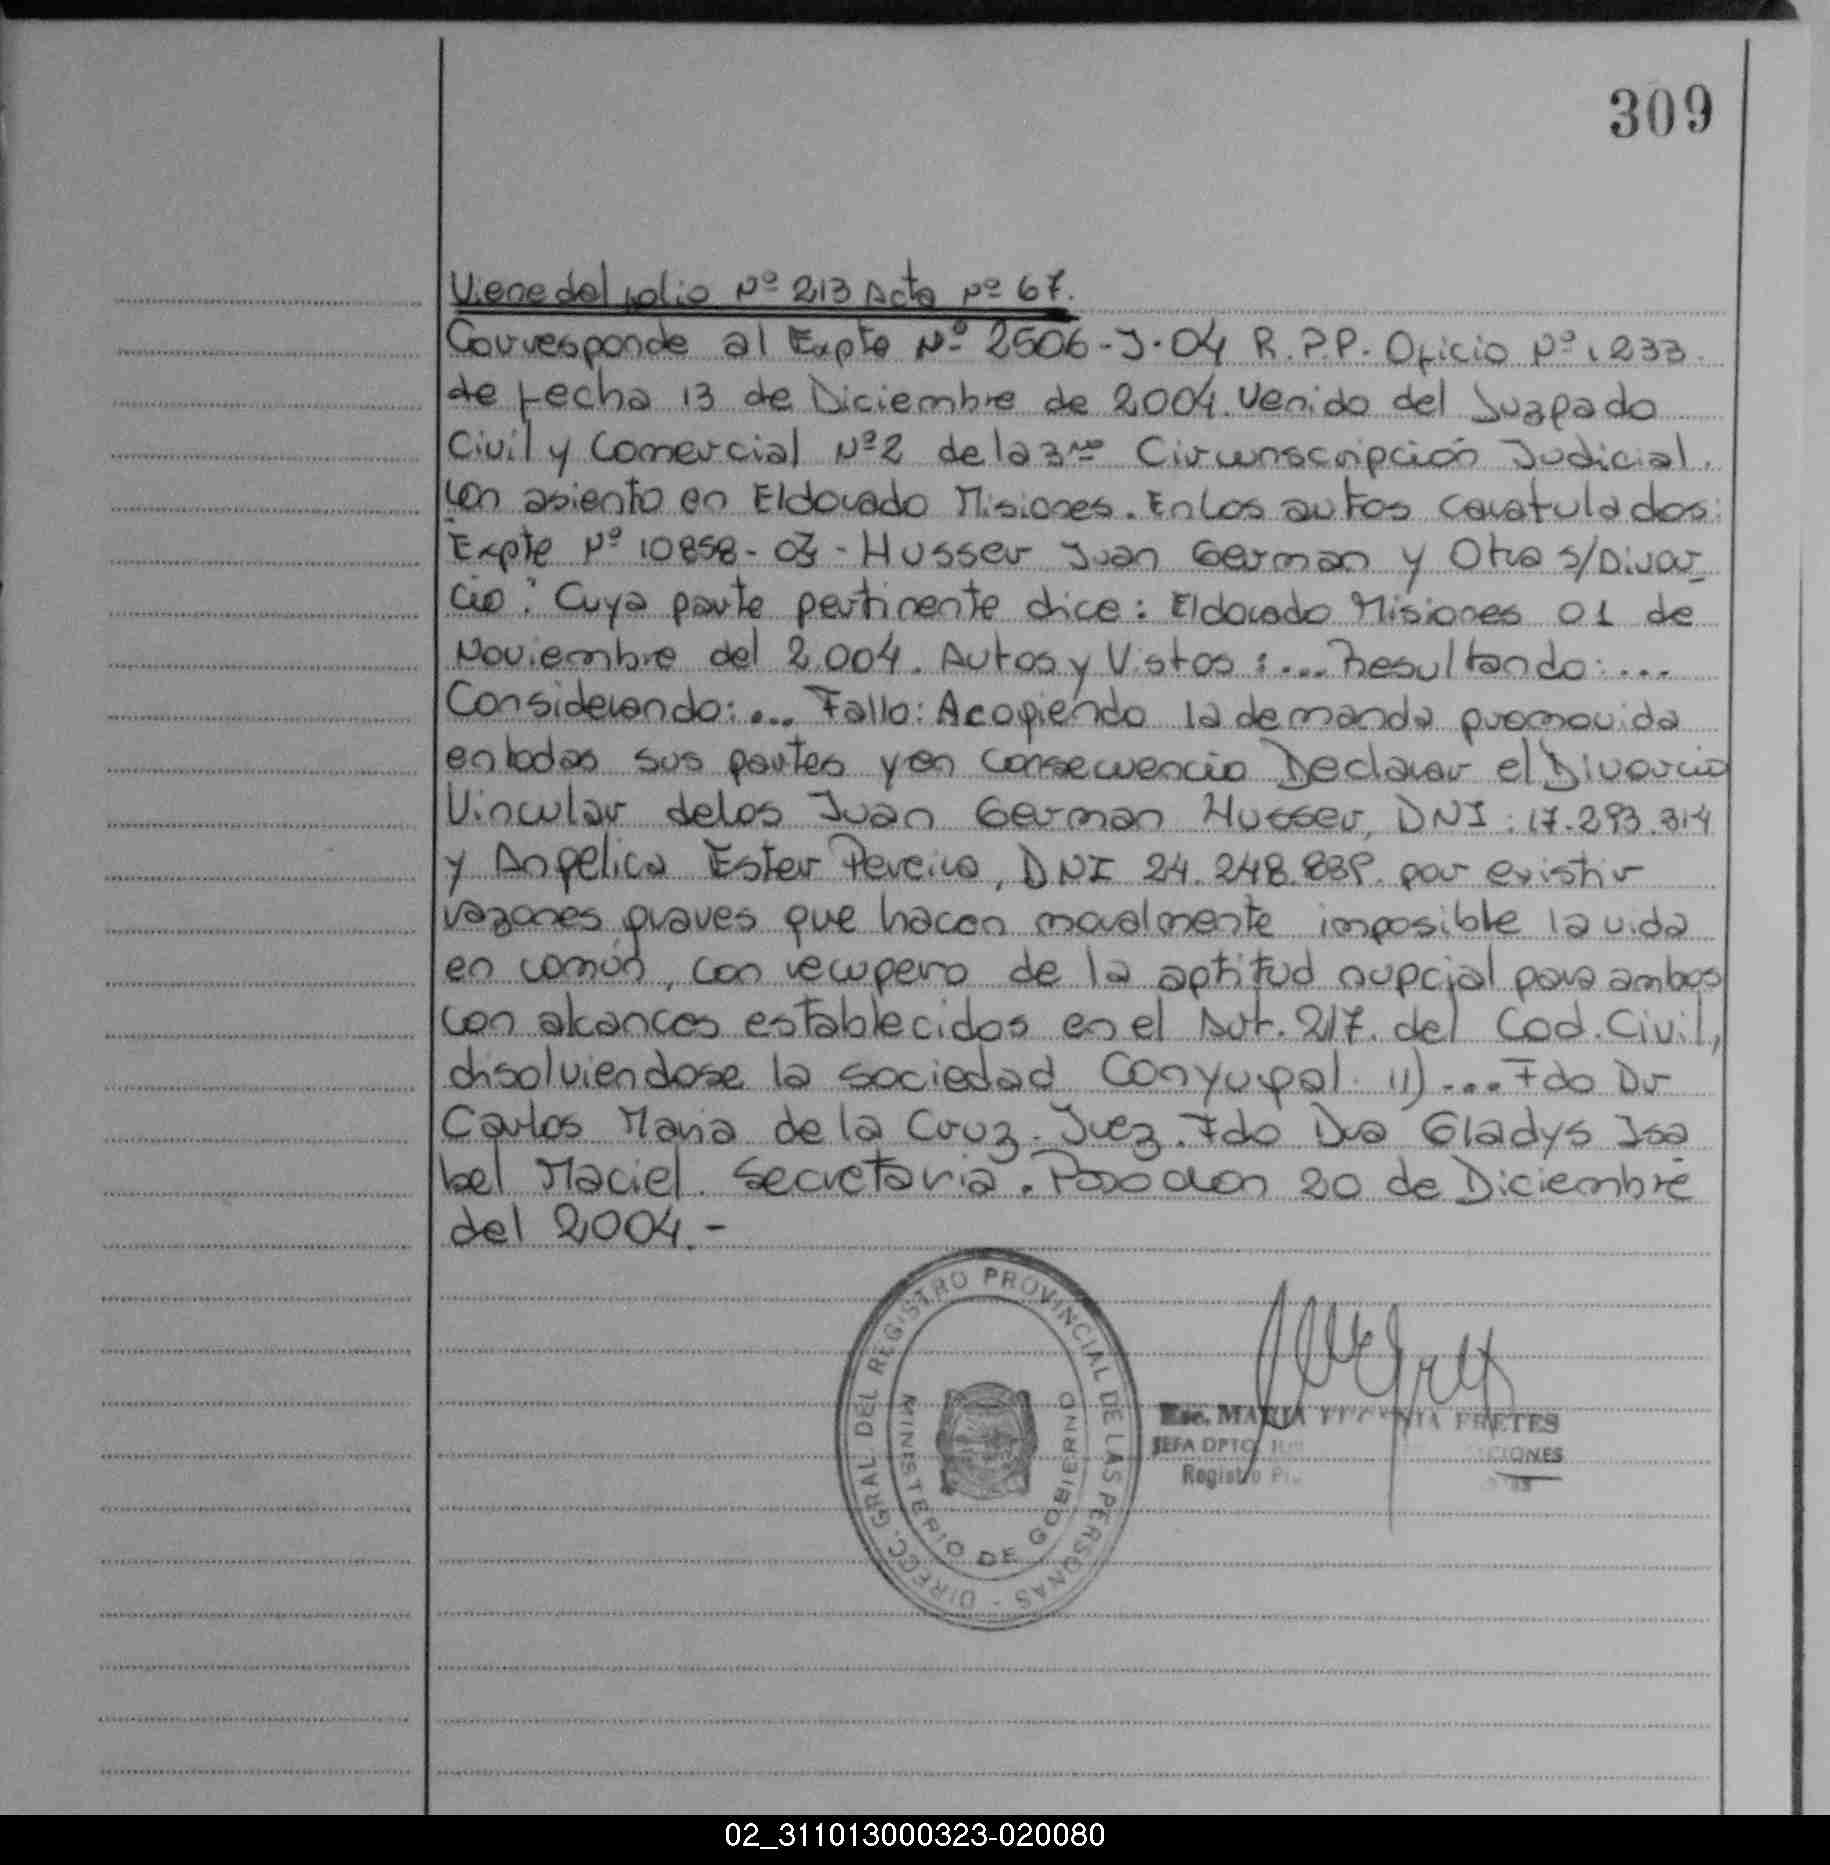 309
Viene del folio Nº 213 Acta Nº 67.
Corresponde al Expte Nº 2506-J-04 R.P.P. Oficio Nº 1233.
de fecha 13 de Diciembre de 2004. Venido del Juzgado
Civil y Comercial Nº 2 de la 3ra Circunscripción Judicial.
con asiento en Eldorado Misiones. En los autos caratulados:
"Expte Nº 10858-03 - Husser Juan German y Otra s/Divor-
cio". Cuya parte pertinente dice: Eldorado Misiones 01 de
Noviembre del 2.004. Autos y Vistos:... Resultando:...
Considerando:... Fallo: Acogiendo la demanda promovida
en todas sus partes y en consecuencia Declarar el Divorcio
Vincular de los Juan German Husser, DNI: 17.293.314
y Angelica Ester Pereira, DNI 24.248.839. por existir
razones graves que hacen moralmente imposible la vida
en común, con recupero de la aptitud nupcial para ambos
con alcances establecidos en el Art. 217. del Cod. Civil,
disolviendose la sociedad Conyugal. II)... Fdo Dr
Carlos Maria de la Cruz. Juez. Fdo Dra Gladys Isa
bel Maciel. Secretaria. Posadas 20 de Diciembre
del 2004.-
DIRECC. GRAL DEL REGISTRO PROVINCIAL DE LAS PERSONAS -
MINISTERIO DE GOBIERNO
Esc. MARIA FRETES
JEFA DPTO.
Registro
02_311013000323-020080